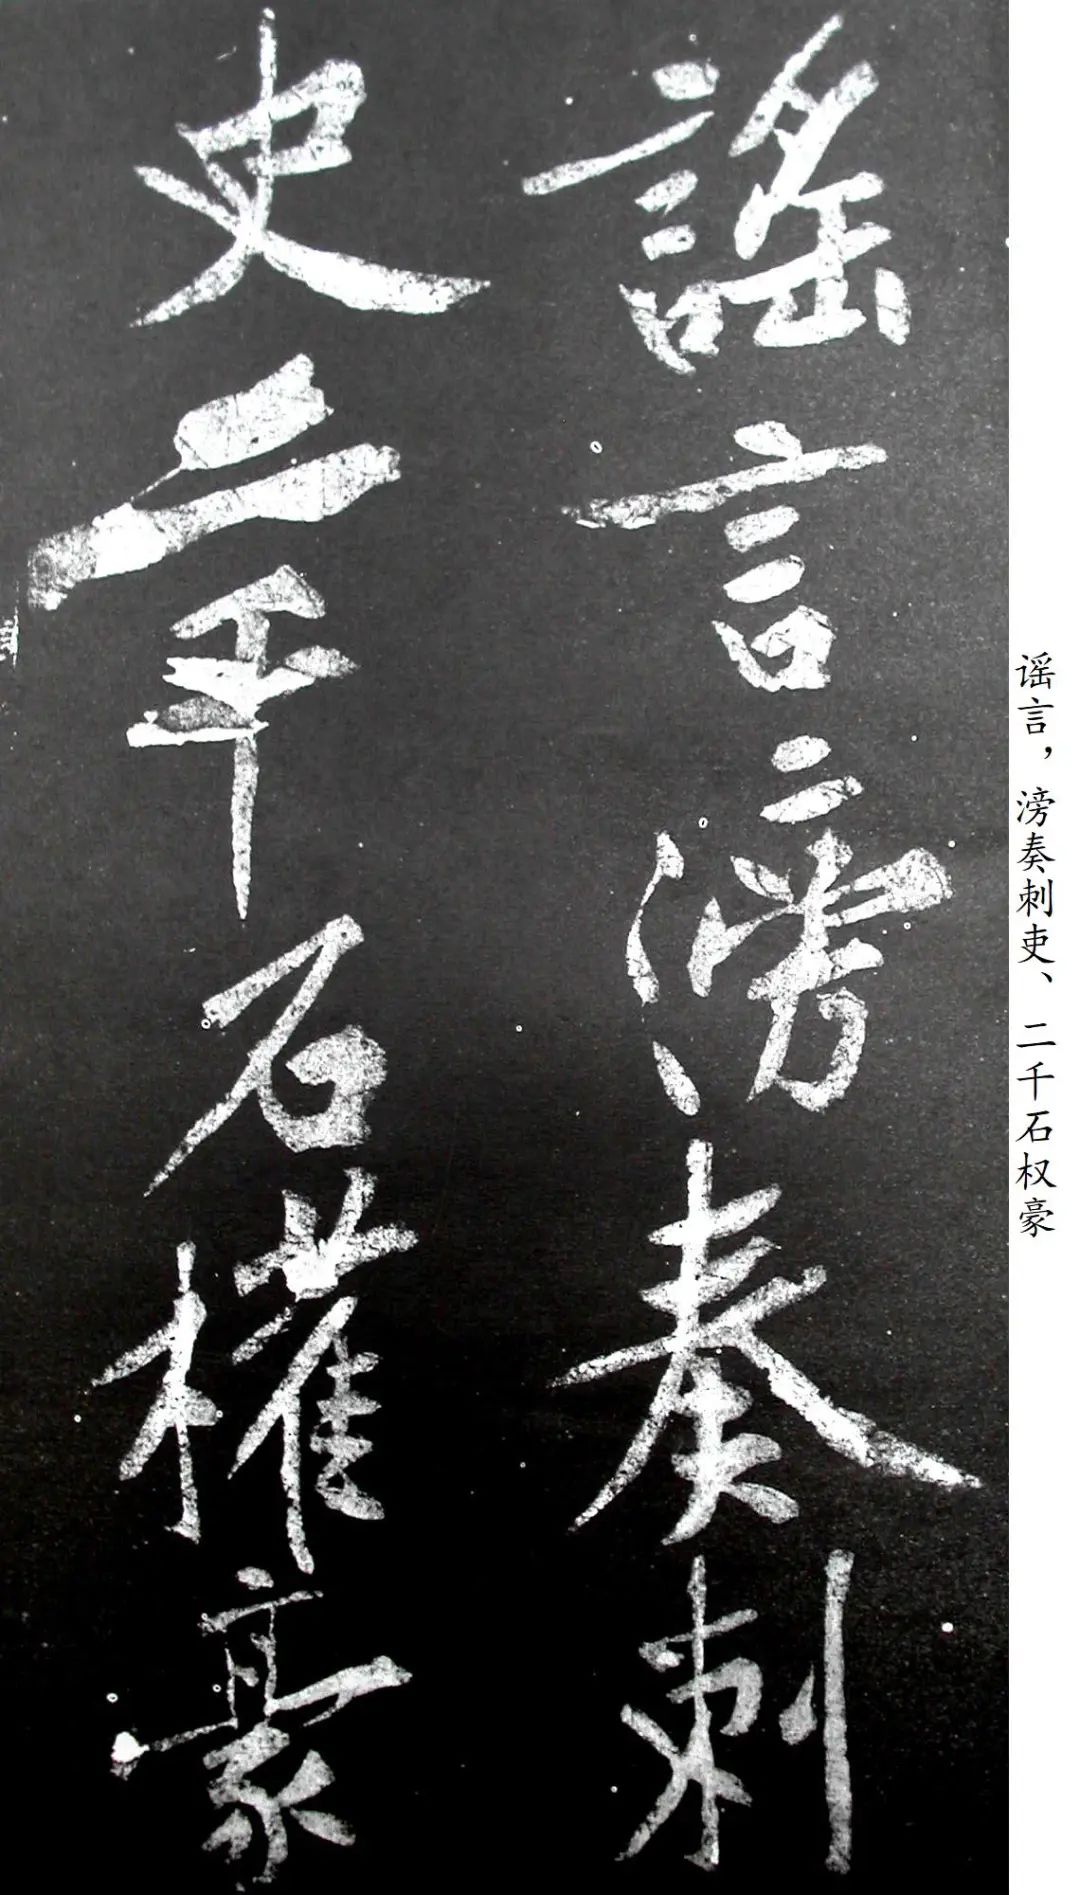 謠言滂奏刺
史二千石權豪
谣言，滂奏刺吏、二千石权豪